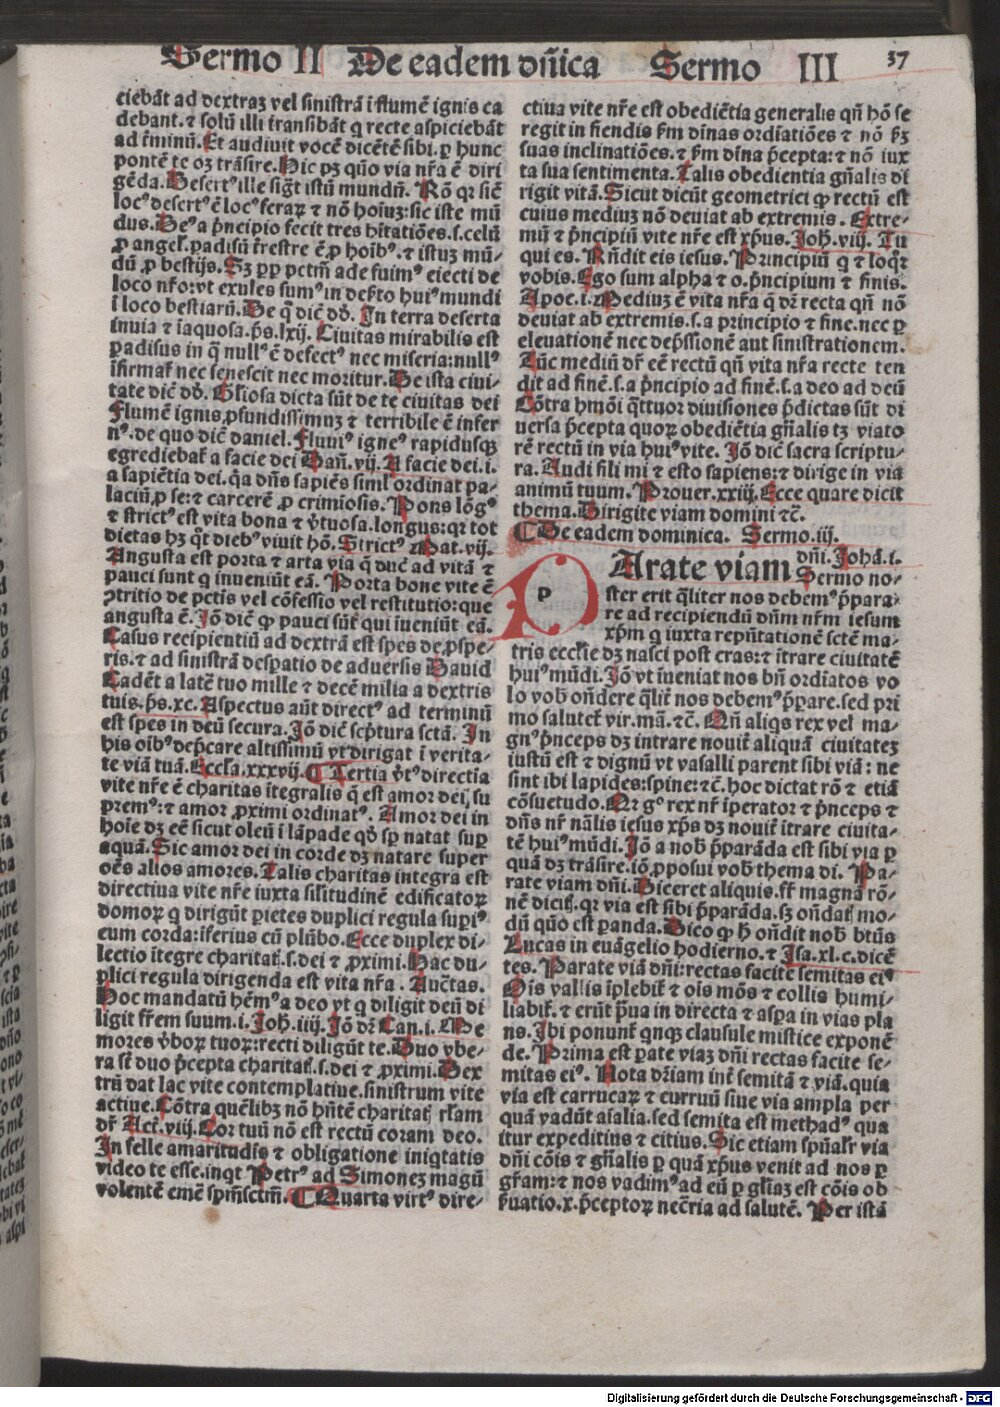 Sermo II De eadem dñica Sermo III 37
ciebāt ad dextraʒ vel sinistrā i flumē ignis ca
debant. ⁊ solū illi trāsibāt q recte aspiciebāt
ad t̃minū. Et audiuit vocē dicētē sibi. ꝑ hunc
pontē te oʒ trāsire. Hic pʒ quo via nr̃a ē diri
gēda. Desertꝰ ille sigt̃ istū mundū. Rō qꝛ sic̄
locꝰ desertꝰ ē locꝰ feraꝝ ⁊ nō hoīuʒ: sic iste mū
dus. Deꝰ a p̃ncipio fecit tres hītatiōes. s. celū
ꝓ angel. padisū t̃restre ē ꝓ hoibꝰ. ⁊ istuʒ mū⸗
dū ꝓ bestijs. Sʒ ꝓp pctm̄ ade fuimꝰ eiecti de
loco nr̃o: vt exules sumꝰ in dep̄to huiꝰ mundi
i loco bestiarū. De q̄ dic̄ dd̄. In terra deserta
inuia ⁊ iaquosa. ps̄. lxij. Ciuitas mirabilis est
padisus in q̄ nullꝰ ē defectꝰ nec miseria: nullꝰ
ifirmat̄ nec senescit nec moritur. De ista ciui⸗
tate dic̄ dd̄. Gliosa dicta sūt de te ciuitas dei
Flumē ignis ꝓfundissimuʒ ⁊ terribile ē infer
nꝰ. de quo dic̄ daniel. Fluuiꝰ igneꝰ rapidusqʒ
egrediebat̄ a facie dei Dañ. vij. A facie dei. i.
a sapiētia dei. q̄a dn̄s sapiēs simil ordinat pa⸗
laciū ꝓ se: ⁊ carcerē ꝓ crimiosis. Pons lōgꝰ
⁊ strictꝰ est vita bona ⁊ v̓tuosa. longus: qꝛ tot
dietas hʒ qt̄ diebꝰ viuit hō. Strictꝰ Mat. vij.
Angusta est porta ⁊ arta via q̄ duc̄ ad vitā ⁊
pauci sunt q inueniūt eā. Porta bone vite ē
ꝯtritio de pctis vel cōfessio vel restitutio: que
angusta ē. Jō dic̄ ꝙ pauci sūt qui īueniūt eā.
Casus recipientiū ad dextrā est spes de ꝓspe⸗
ris. ⁊ ad sinistrā despatio de aduersis Dauid
Cadēt a latē tuo mille ⁊ decē milia a dextris
tuis. ps̄. xc. Aspectus aūt directꝰ ad terminū
est spes in deū secura. Jō dic̄ sc̄ptura sctā. In
his oībꝰ dep̄care altissimū vt dirigat i verita⸗
te viā tuā. Eccl̃a. xxxvij. ¶ Tertia v̓tꝰ directia
vite nr̃e ē charitas itegralis q̄ est amor dei su
premꝰ: ⁊ amor ꝓximi ordinatꝰ. Amor dei in
hoie dʒ eē sicut oleū i lāpade qd̄ sp natat sup
aquā. Sic amor dei in corde dʒ natare super
oēs alios amores. Talis charitas integra est
directiua vite nr̃e iuxta silitudinē edificatoꝝ
domoꝝ q dirigūt pietes duplici regula supiꝰ
cum corda: iferius cū plūbo. Ecce duplex di⸗
lectio itegre charitat. s. dei ⁊ ꝓximi. Hac du⸗
plici regula dirigenda est vita nr̃a. Auc̄tas.
Hoc mandatū hēmꝰ a deo vt q diligit deū di
ligit fr̃em suum. i. Joh. iiij. Jō dr̃ Can. i. Me
mores v̓boꝝ tuoꝝ: recti diligūt te. Duo vbe⸗
ra st̄ duo p̄cepta charitat. s. dei ⁊ ꝓximi. Dex
trū dat lac vite contemplatiue. sinistrum vite
actiue. Cōtra quēlibʒ nō hn̄tē charitatʒ istam
dr̄ Act. viij. Cor tuū nō est rectū coram deo.
In felle amaritudīs ⁊ obligatione iniqtatis
video te esse. inqt Petrꝰ ad Simoneʒ magū
volentē emē spm̄sctm̄. ¶ Quarta virtꝰ dire⸗
ctiua vite nr̃e est obediētia generalis qn̄ hō se
regit in fiendis fm̄ dinas ordiatiōes ⁊ nō fʒ
suas inclinatiōes. ⁊ fm̄ dina p̄cepta: ⁊ nō iux
ta sua sentimenta. Talis obedientia gn̄alis di
rigit vitā. Sicut dicūt geometrici ꝙ rectū est
cuius mediuʒ nō deuiat ab extremis. Extre⸗
mū ⁊ p̄ncipiū vite nr̃e est xp̄us. Joh. viij. Tu
qui es. Rn̄dit eis iesus. Principiū q ⁊ loqr
vobis. Ego sum alpha ⁊ o. p̄ncipium ⁊ finis.
Apoc. i. Mediuʒ ē vita nr̃a q̄ dr̄ recta qn̄ nō
deuiat ab extremis. s. a principio ⁊ fine. nec ꝑ
eleuationē nec dep̄ssionē aut sinistrationem.
Tūc mediū dr̄ eē rectū qn̄ vita nr̃a recte ten
dit ad finē. s. a p̄ncipio ad finē. s. a deo ad deū
Cōtra hmōi q̄ttuor diuisiones p̄dictas sūt di
uersa p̄cepta quoꝝ obediētia gn̄alis tʒ viato
rē rectū in via huiꝰ vite. Jō dic̄ sacra scriptu⸗
ra. Audi fili mi ⁊ esto sapiens: ⁊ dirige in via
animū tuum. Prouer. xxiij. Ecce quare dicit
thema. Dirigite viam domini ⁊c̄.
¶ De eadem dominica. Sermo. iij.
Parate viam dn̄i. Johā. i.
Sermo no⸗
ster erit q̄liter nos debemꝰ p̄para⸗
re ad recipiendū dn̄m nr̃m iesum
xp̄m q iuxta repn̄tationē sctē ma⸗
tris ecclīe dʒ nasci post cras: ⁊ itrare ciuitatē
huiꝰ mūdi. Jō vt iueniat nos bn̄ ordiatos vo
lo vob ondere q̄lit̄ nos debemꝰ p̄pare. sed pri
mo salutet̄ vir. mā. ⁊c̄. Qn̄ aliqs rex vel ma⸗
gnꝰ p̄nceps dʒ intrare nouit̄ aliquā ciuitateʒ
iustū est ⁊ dignū vt vasalli parent sibi viā: ne
sint ibi lapides: spine: ⁊c̄. hoc dictat rō ⁊ etiā
cōsuetudo. Qr gͦ rex nr̄ iperator ⁊ p̄nceps ⁊
dn̄s nr̄ nālis iesus xp̄s dʒ nouit̄ itrare ciuita⸗
tē huiꝰ mūdi. Jō a nob p̄parāda est sibi via ꝑ
quā dʒ trāsire. iō ꝓposui vob thema di. Pa⸗
rate viam dn̄i. Diceret aliquis. fr̄ magnā rō⸗
nē dicitʒ. qꝛ via est sibi p̄parāda. sʒ ondatʒ mo⸗
dū quō est panda. Dico ꝙ h̄ ondit nob btūs
Lucas in euāgelio hodierno. ⁊ Jsa. xl. c. dicē
tes. Parate viā dn̄i: rectas facite semitas eiꝰ
Ois vallis iplebit̄ ⁊ ois mōs ⁊ collis humi⸗
liabit̄. ⁊ erūt p̄ua in directa ⁊ aspa in vias pla
nas. Ibi ponunt̄ qnqʒ clausule mistice exponē
de. Prima est pate viaʒ dn̄i rectas facite se⸗
mitas eiꝰ. Nota dr̄iam int̄ semitā ⁊ viā. quia
via est carrucaꝝ ⁊ curruū siue via ampla per
quā vadūt aīalia. sed semita est methadꝰ qua
itur expeditius ⁊ citius. Sic etiam spūalr̄ via
dn̄i cōis ⁊ gn̄alis ꝑ quā xp̄us venit ad nos ꝑ
gr̄am: ⁊ nos vadimꝰ ad eū ꝑ gl̄iaʒ est cōis ob
ẜuatio. x. p̄ceptoꝝ nec̄ria ad salutē. Per istā
P
Digitalisierung gefördert durch die Deutsche Forschungsgemeinschaft - DFG